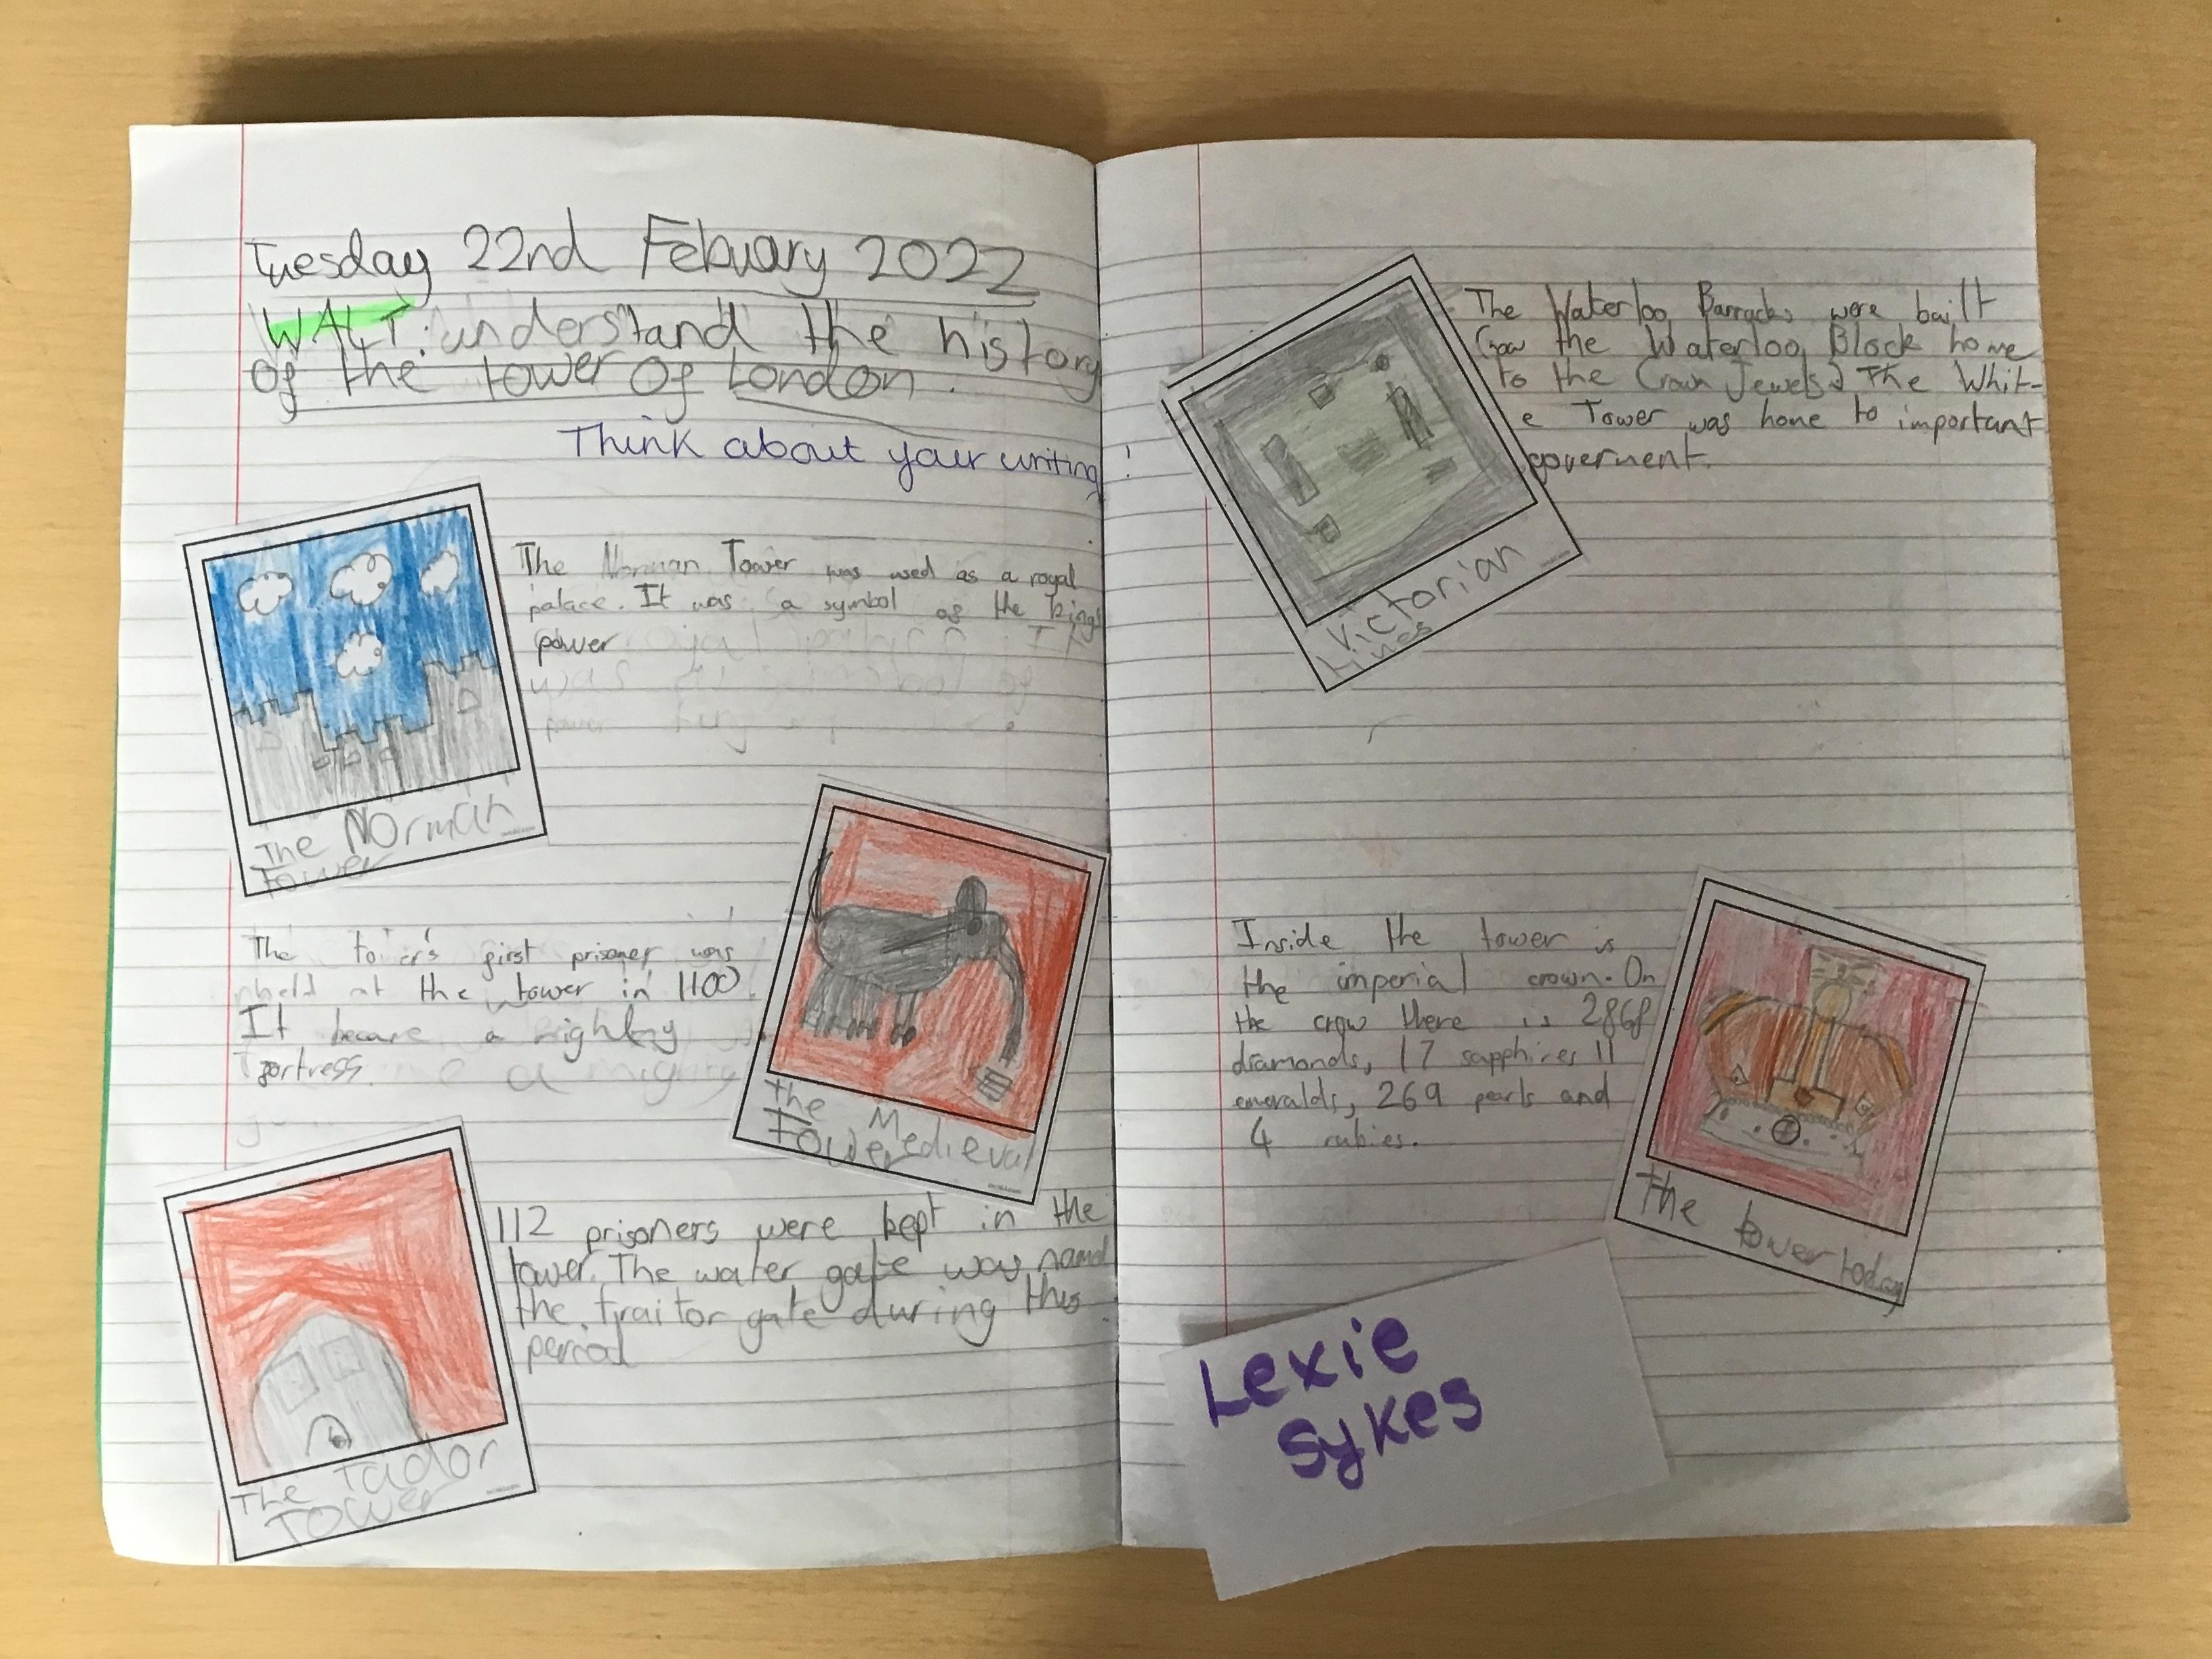 Tuesday 22nd Febuary 2022
WALT: understand the history
of the tower of London.
Think about your writing!
The Norman Tower was used as a royal
palace. It was a symbol of the kings
power
The Norman
Tower
The tower's first prisoner was
held at the tower in 1100.
It became a mighty
fortress.
the Medieval
Tower
112 prisoners were kept in the
tower. The water gate was named
the traitor gate during this
period
The Tudor
Tower
The Waterloo Barracks were built
(now the Waterloo Block home
to the Crown Jewels) The Whit-
e Tower was home to important
goverment.
Victorian
Lines
Inside the tower is
the imperial crown. On
the crow there is 2868
diamonds, 17 sapphires 11
emeralds, 269 pearls and
4 rubies.
The tower today
Lexie
Sykes